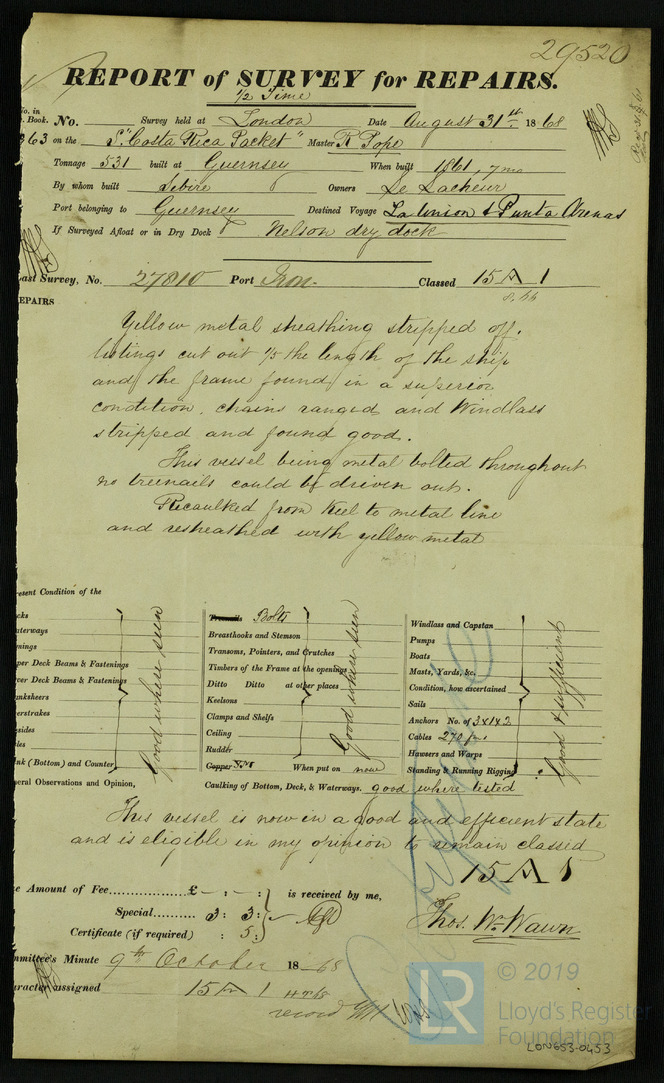 29520
REPORT of SURVEY for REPAIRS.
1/2 Time
No. in
Book. No. Survey held at London Date August 31st 1868
363 on the S "Costa Rica Packet" Master R Pope
Tonnage 531 built at Guernsey When built 1861, 7 mo
By whom built Sebire Owners Le Lacheur
Port belonging to Guernsey Destined Voyage La Union & Punta Arenas
If Surveyed Afloat or in Dry Dock Nelson dry dock
Last Survey, No. 27810 Port Lon. Classed 15 A 1
8.66
REPAIRS
Yellow metal sheathing stripped off.
listings cut out 1/5 the length of the ship
and the frame found in a superior
condition. chains ranged and Windlass
stripped and found good.
This vessel being metal bolted throughout
no treenails could be driven out.
Recaulked from Keel to metal line
and resheathed with yellow metal
resent Condition of the
cks
aterways
mings
per Deck Beams & Fastenings
wer Deck Beams & Fastenings
anksheers
erstrakes
sides
les
ink (Bottom) and Counter
Good where seen
Treenails Bolts
Breasthooks and Stemson
Transoms, Pointers, and Crutches
Timbers of the Frame at the openings
Ditto Ditto at other places
Keelsons
Clamps and Shelfs
Ceiling
Rudder
Copper Y.M When put on now
Good where seen
Windlass and Capstan
Pumps
Boats
Masts, Yards, &c.
Condition, how ascertained
Sails
Anchors No. of 3 x 1 x 2
Cables 270 fms
Hawsers and Warps
Standing & Running Rigging
Good & sufficient
neral Observations and Opinion, Caulking of Bottom, Deck, & Waterways. good where tested
This vessel is now in a good and efficient state
and is eligible in my opinion to remain classed
15 A 1
e Amount of Fee............£ - . - : is received by me,
Special......... 3: 3:
Certificate (if required) : 5:
Thos. Wm. Wawn
mmittee's Minute 9th October 1868
aracter assigned 15 A 1
© 2019
LR
Lloyd's Register
Foundation
LON653-0453